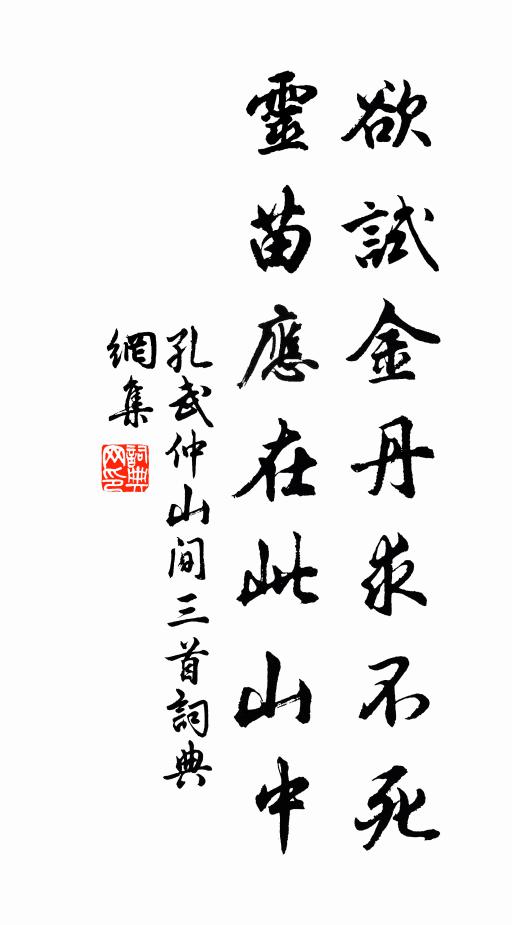 欲試金丹求不死
靈苗應在此山中
孔武仲山間三首詞典
網集
詞典網印